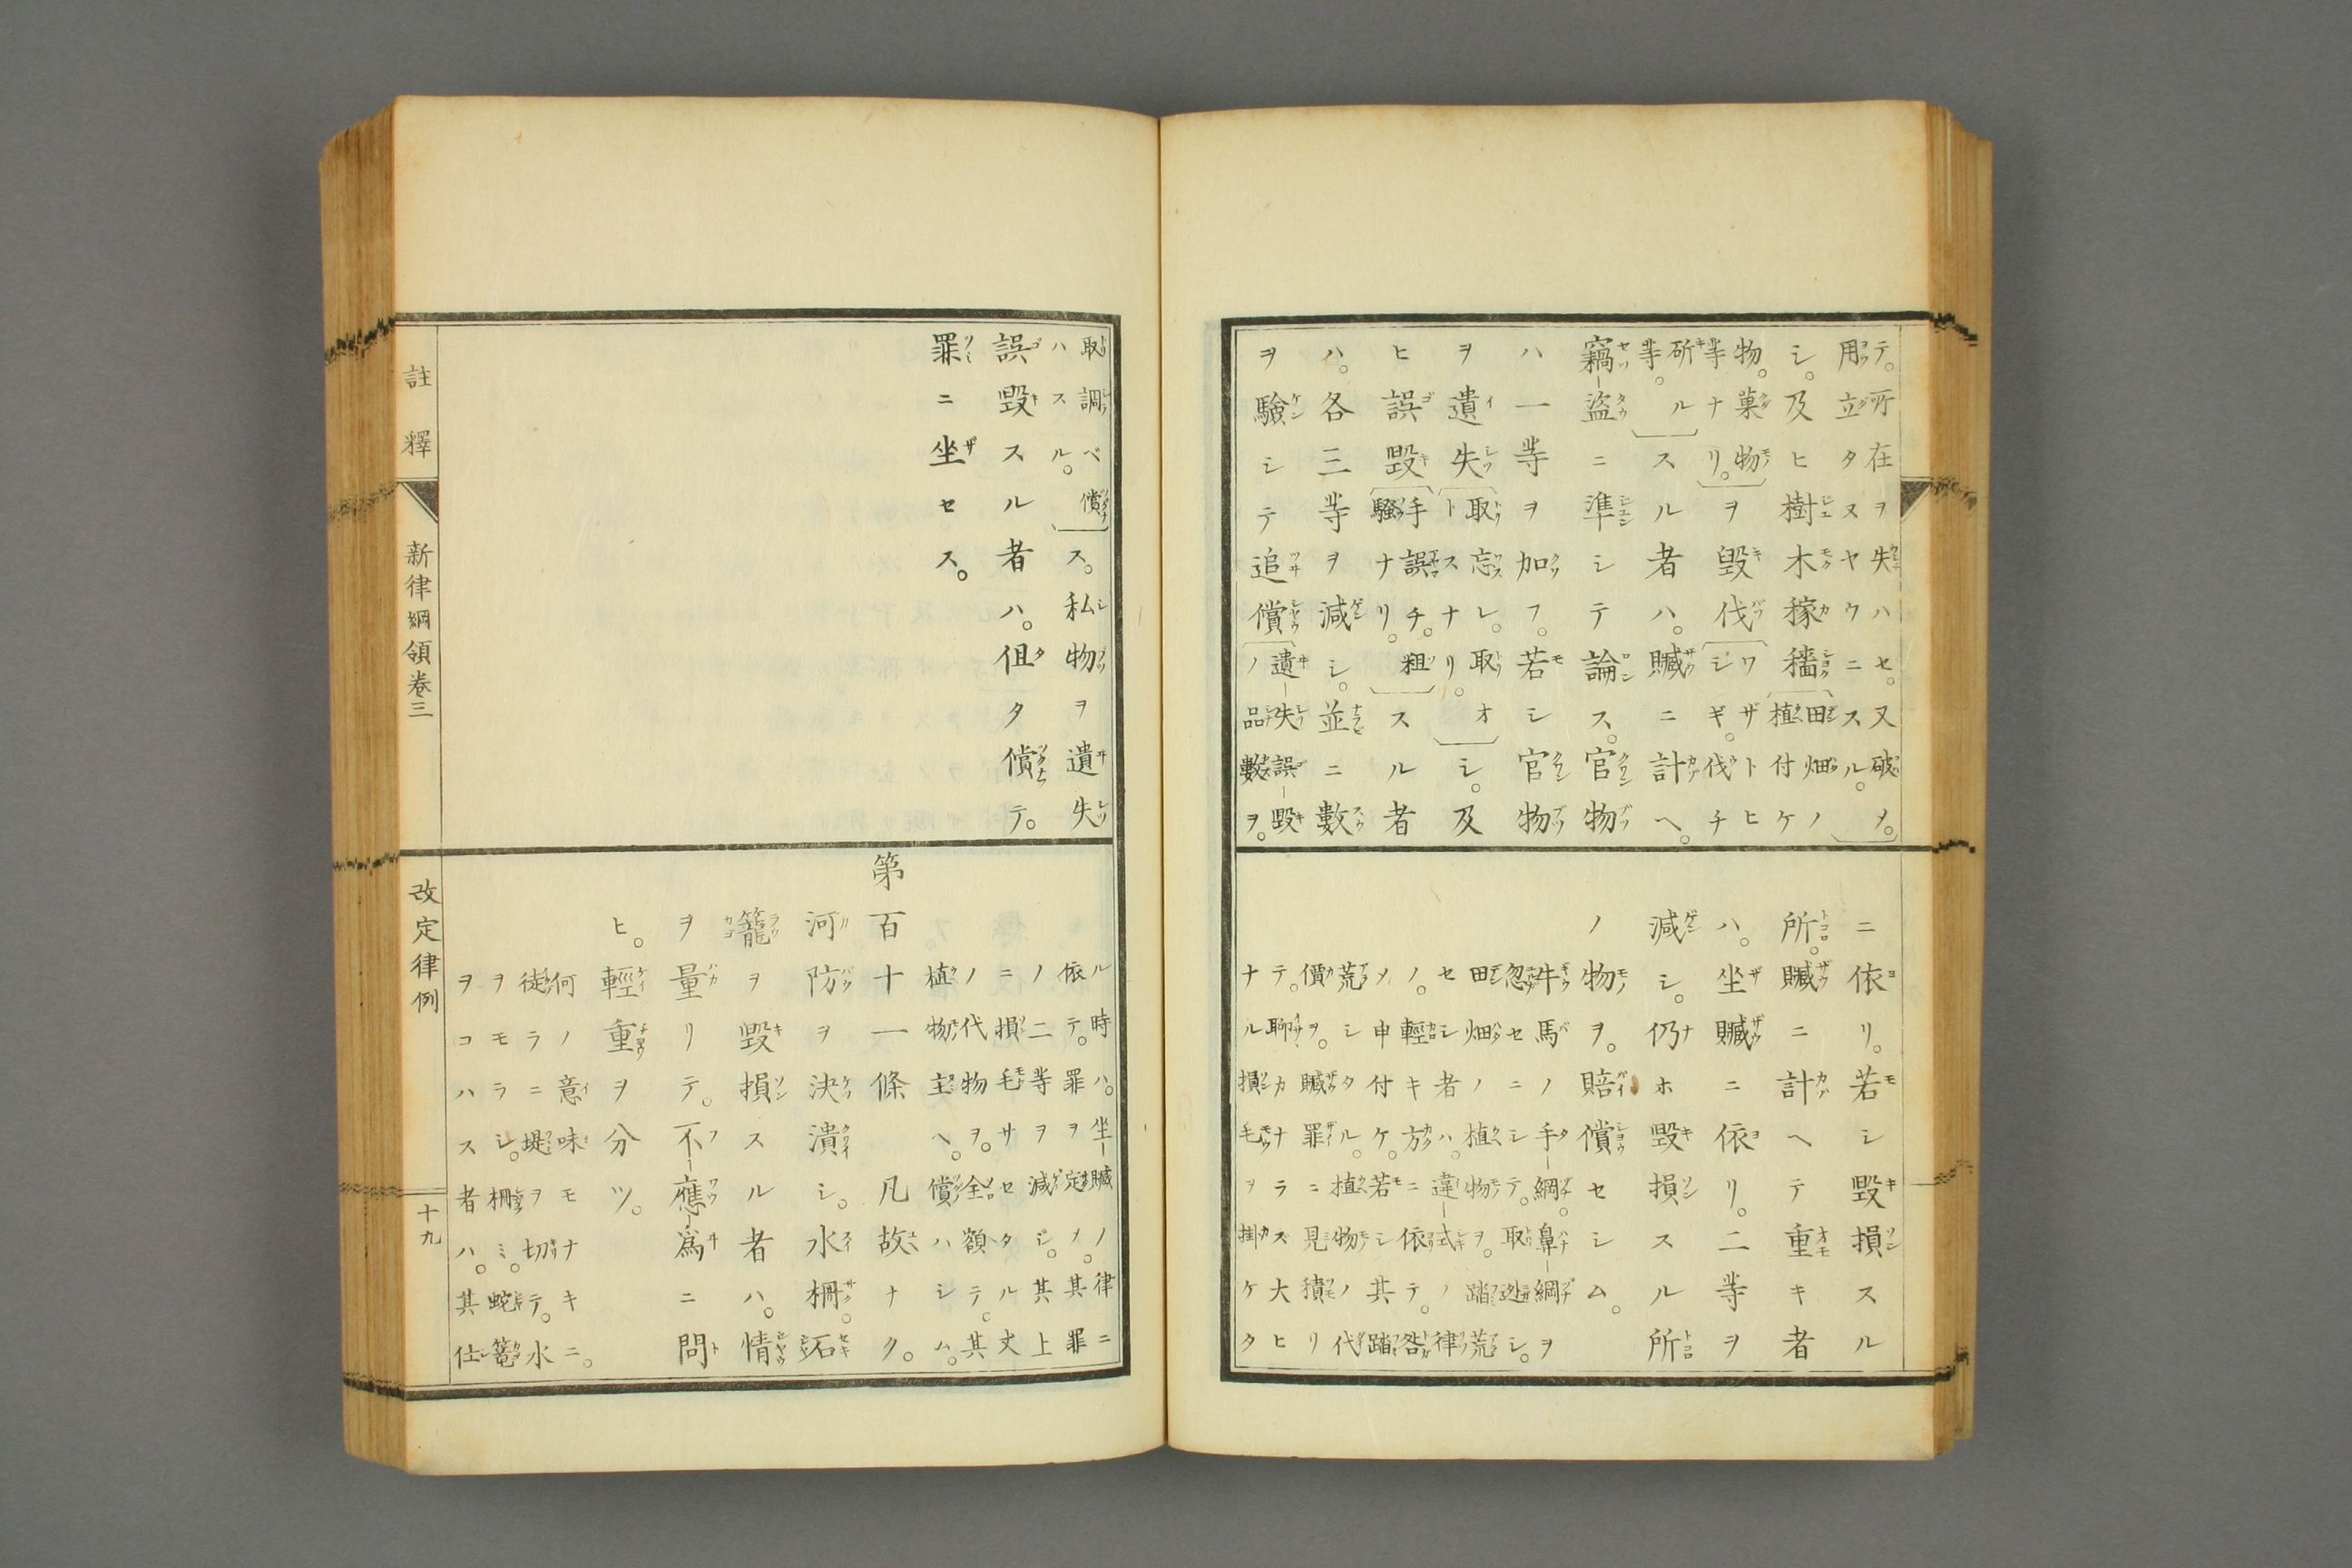 テ。所在ヲ失ハセ。又破メ。
用立タヌヤウニスル。
シ。及ヒ樹木稼穡田畑ノ植付ケ
物。菓物等ナリ。ヲ毀伐ワザトヒシギ。伐チ
斫ル等。スル者ハ。贓ニ計ヘ。
竊盗ニ準シテ論ス。官物
ハ一等ヲ加フ。若シ官物
ヲ遺失取忘レ。取オトスナリ。シ。及
ヒ誤毀手誤チ。粗騒ナリ。スル者
ハ。各三等ヲ減シ。並ニ數
ヲ驗シテ追償遺失誤毀ノ品數ヲ。
ニ依リ。若シ毀損スル
所。贓ニ計ヘテ重キ者
ハ。坐贓ニ依リ。二等ヲ
減シ。仍ホ毀損スル所
ノ物ヲ。賠償セシム。
牛馬ノ手綱鼻綱ヲ
忽セニシテ。取迯シ。
田畑ノ植物ヲ。踏荒
セシ者ハ。違式ノ律
ノ。輕キ方ニ依テ。咎
メ申付ケ。若シ其踏
荒シタル。植物ノ代
價ヲ。贓罪ニ見積リ
テ。聊カナラズ大ヒ
ナル損毛ヲ掛ケタ
取調ベ償ハスル。ス。私物ヲ遺失
誤毀スル者ハ。但タ償テ。
罪ニ坐セス。
ル時ハ。坐贓ノ律ニ
依テ。罪ヲ定メ。其罪
ノ二等ヲ減ジ。其上
ニ損毛サセタル丈
ノ代物ヲ。全額テ。其
植物主ヘ。償ハシム。
第百十一條凡故ナク。
河防ヲ決潰シ。水柵。石
籠ヲ毀損スル者ハ。情
ヲ量リテ。不應爲ニ問
ヒ。輕重ヲ分ツ。
何ノ意味モナキニ。
徒ラニ堤ヲ切テ。水
ヲモラシ。柵ミ。蛇篭
ヲコハス者ハ。其仕
註釋 新律綱領卷三 改定律例 十九